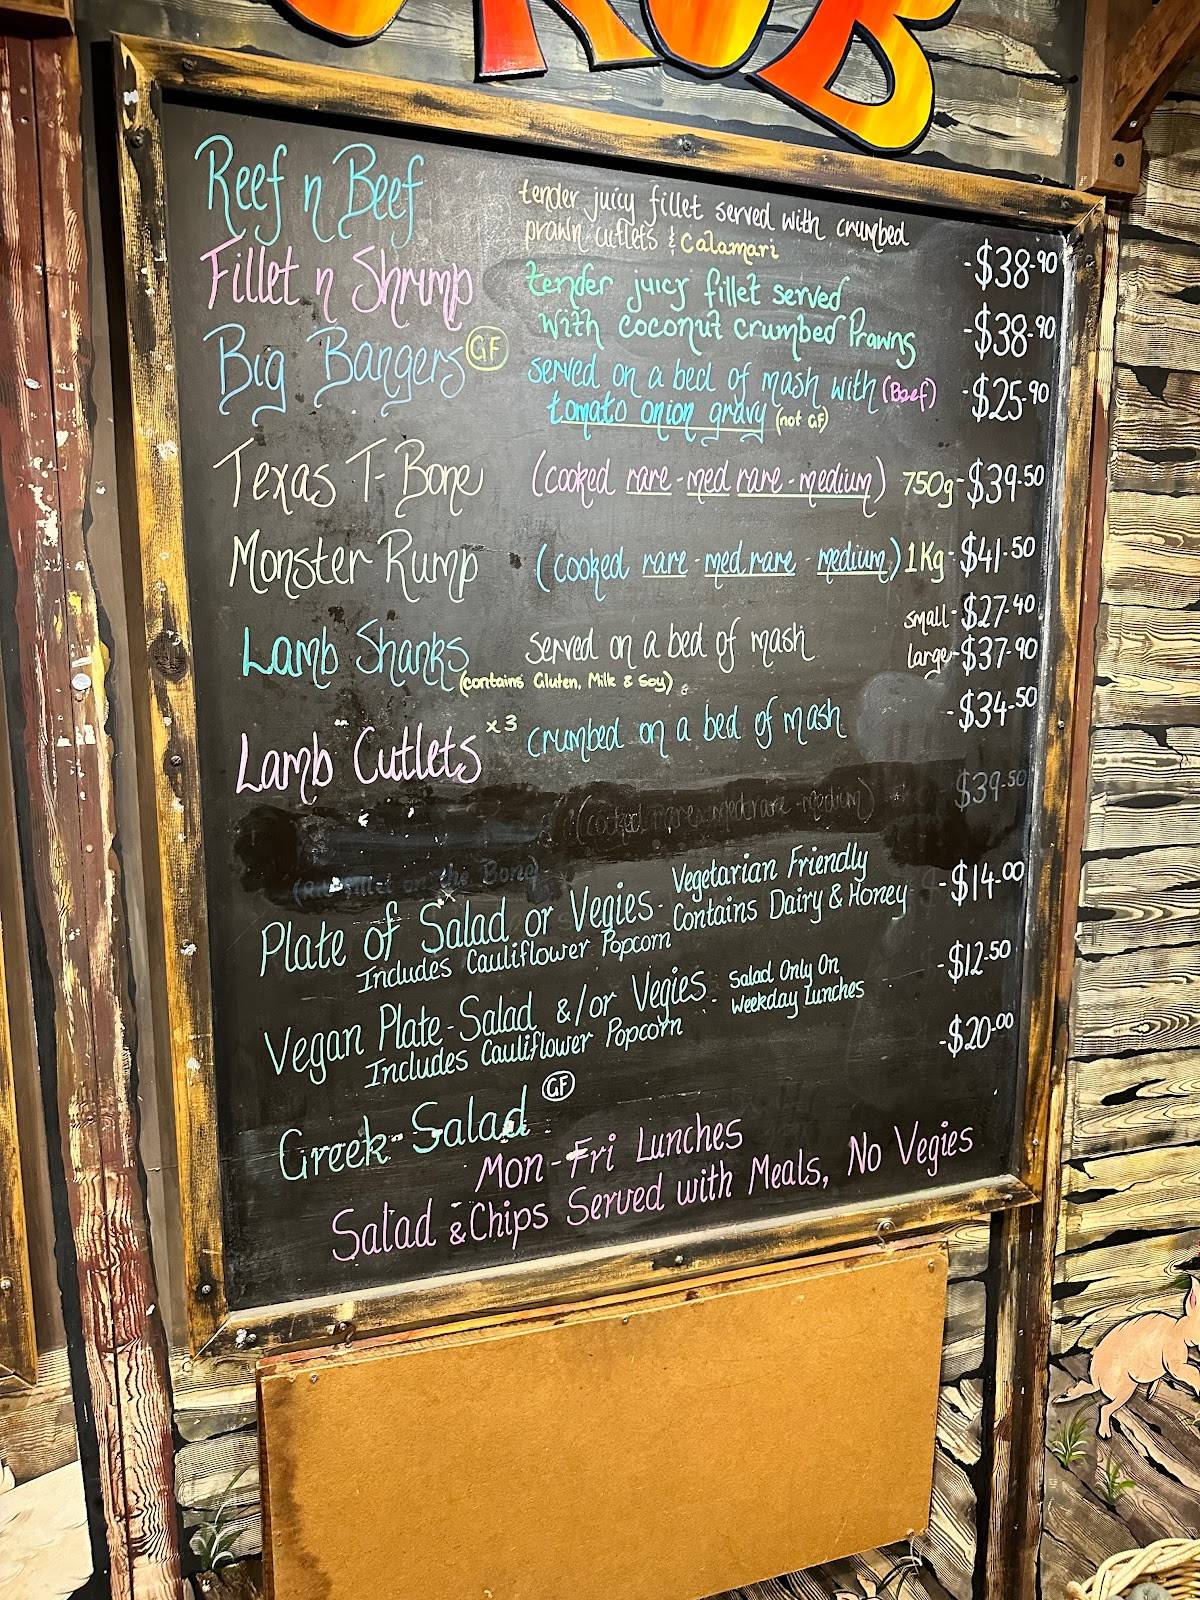 RUB
Reef n Beef tender juicy fillet served with crumbed
prawn cutlets & Calamari -$38.90
Fillet n Shrimp tender juicy fillet served
with coconut crumbed Prawns -$38.90
Big Bangers GF served on a bed of mash with (Beef) -$25.90
tomato onion gravy (not GF)
Texas T-Bone (cooked rare - med rare - medium) 750g -$39.50
Monster Rump (cooked rare - med rare - medium) 1Kg -$41.50
Lamb Shanks served on a bed of mash small - $27.40
(contains Gluten, Milk & Soy) large -$37.90
Lamb Cutlets x3 crumbed on a bed of mash -$34.50
(cooked rare - med rare - medium) $39.50
on the Bone)
Plate of Salad or Vegies - Vegetarian Friendly -$14.00
Includes Cauliflower Popcorn Contains Dairy & Honey
Vegan Plate - Salad &/or Vegies - Salad Only On -$12.50
Includes Cauliflower Popcorn Weekday Lunches
Greek Salad GF -$20.00
Mon-Fri Lunches
Salad & Chips Served with Meals, No Vegies